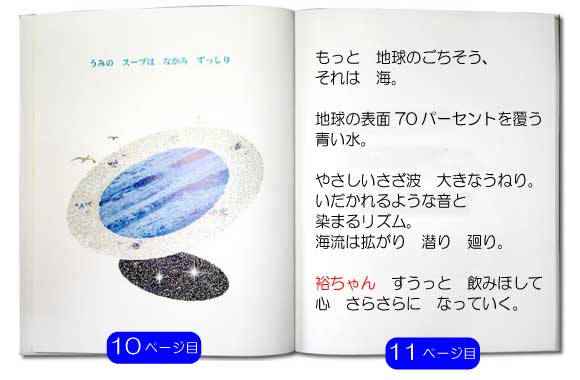 うみの　スープは　なかみ　ずっしり
もっと　地球のごちそう、
それは　海。
地球の表面70パーセントを覆う
青い水。
やさしいさざ波　大きなうねり。
いだかれるような音と
染まるリズム。
海流は拡がり　潜り　廻り。
裕ちゃん　すうっと　飲みほして
心　さらさらに　なっていく。
10ページ目
11ページ目